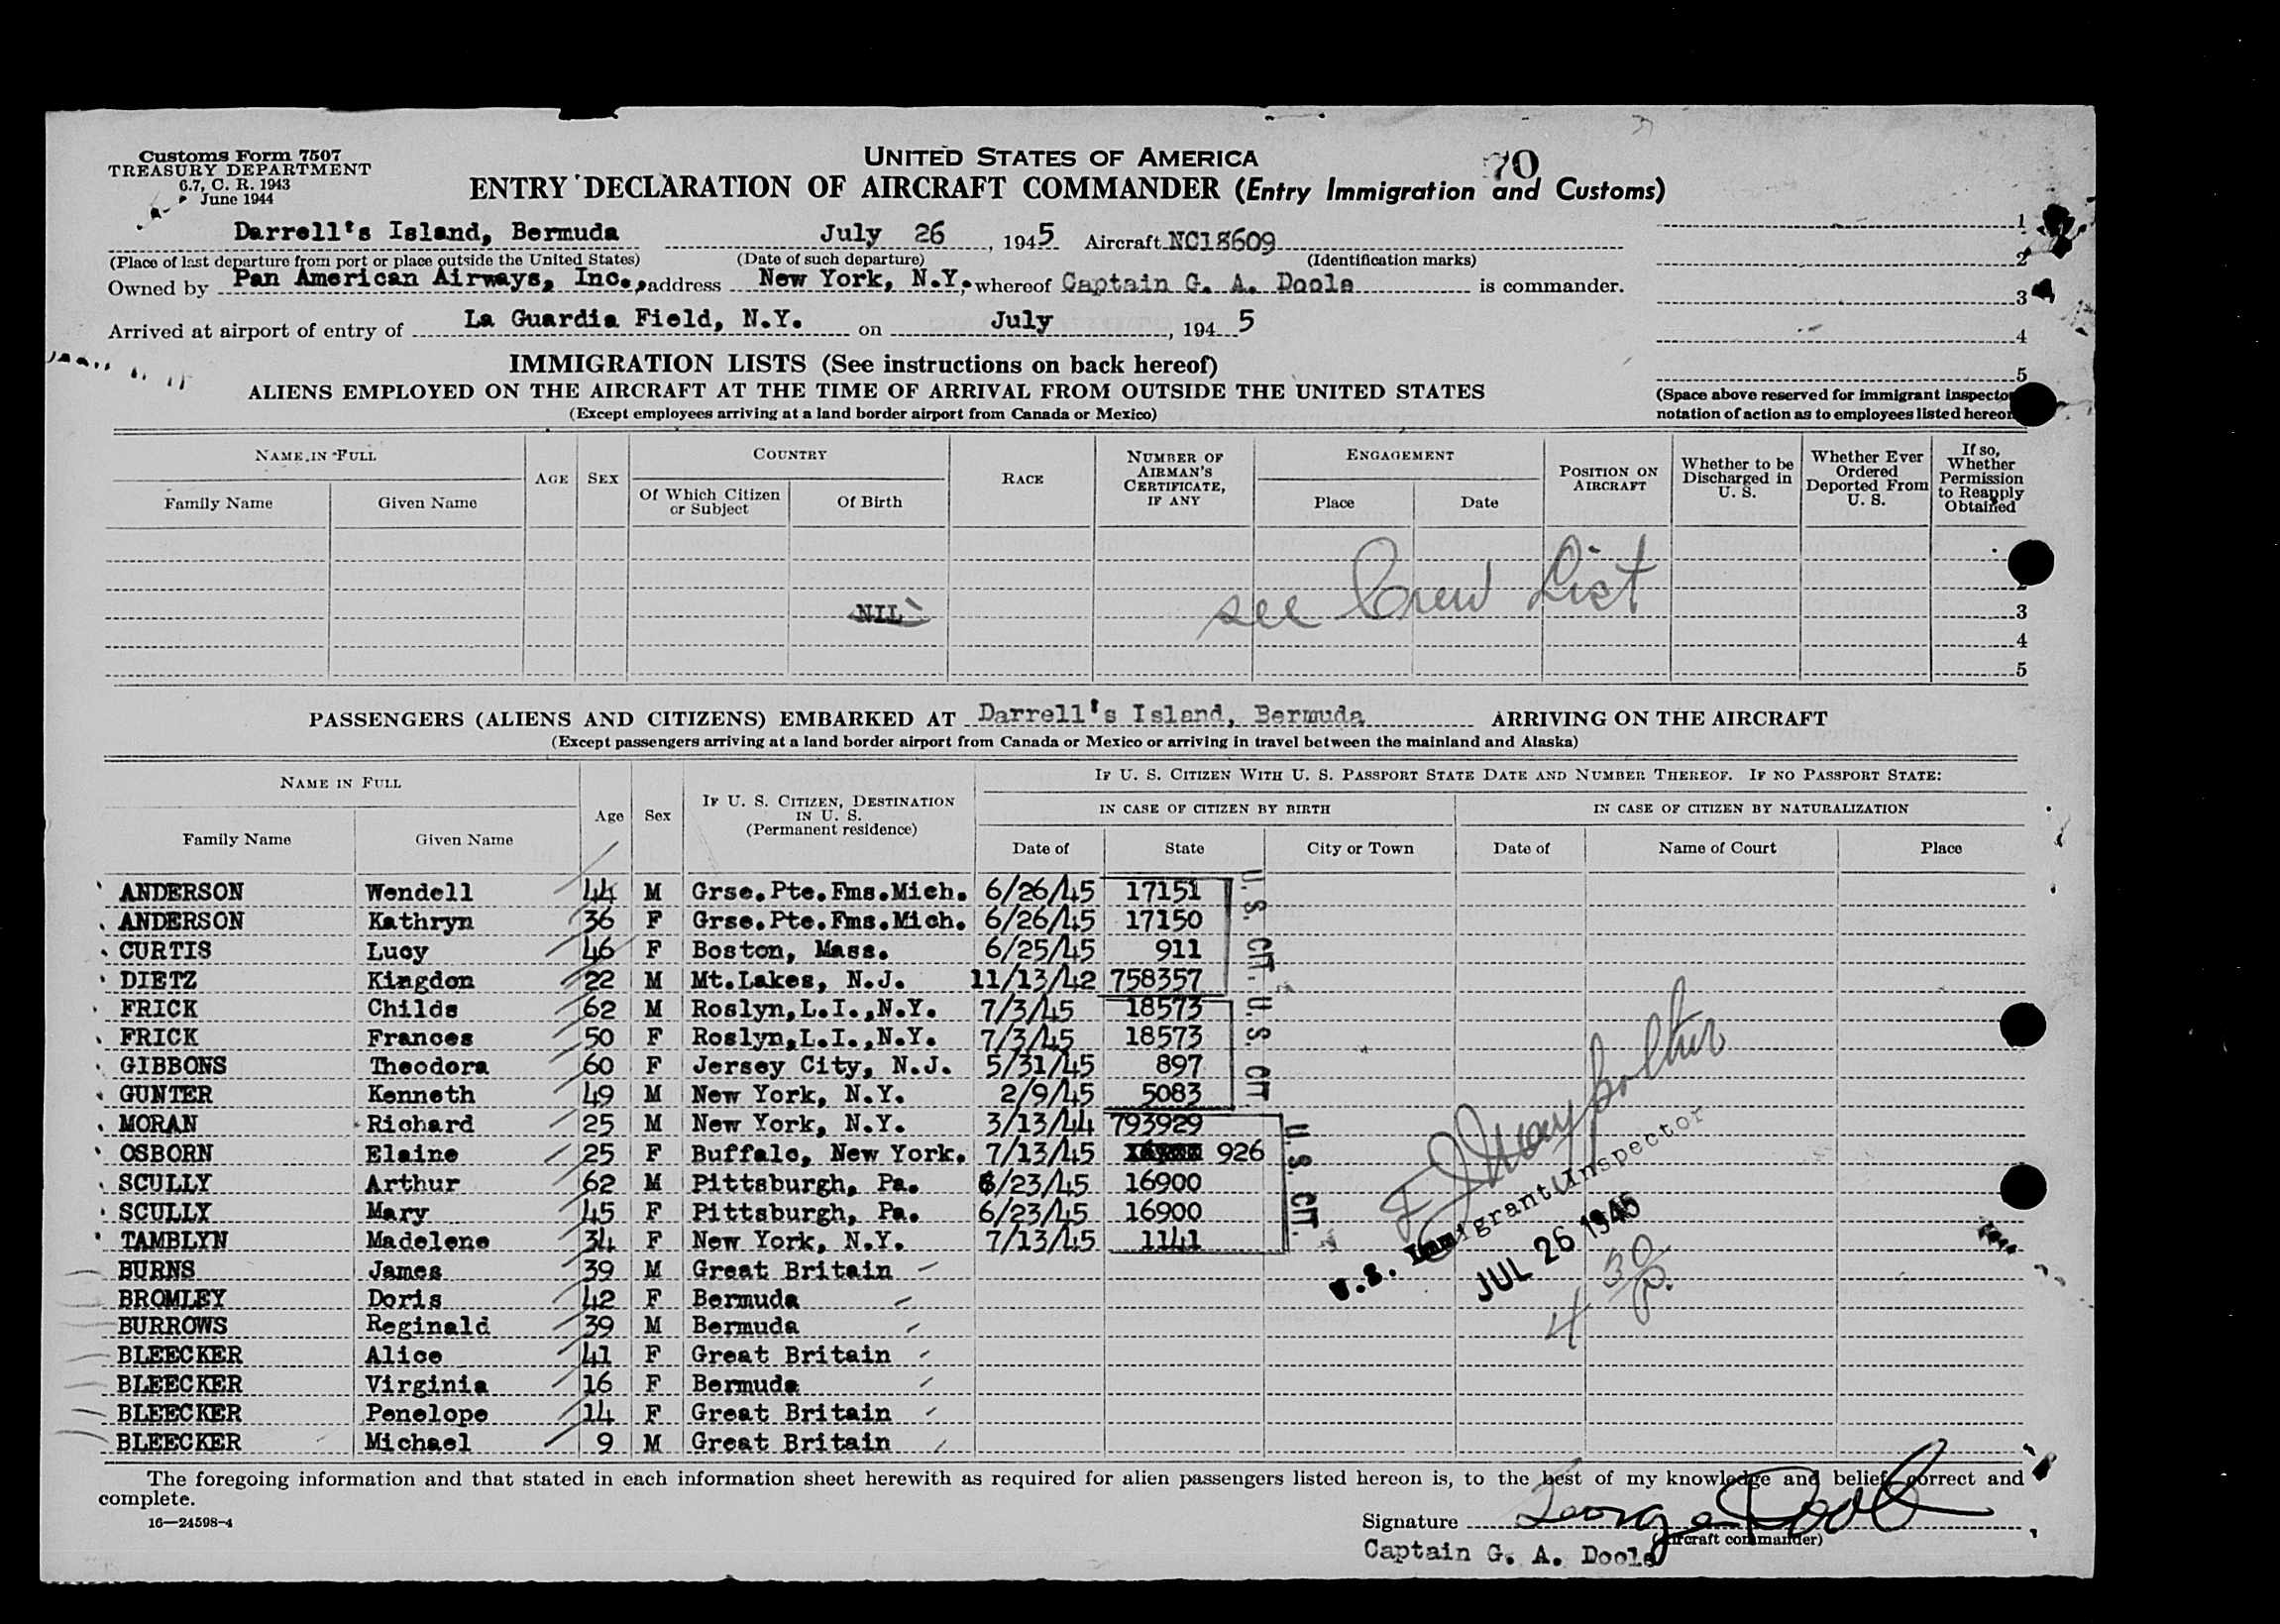 70
Customs Form 7507
TREASURY DEPARTMENT
6.7, C. R. 1943
June 1944
UNITED STATES OF AMERICA
ENTRY DECLARATION OF AIRCRAFT COMMANDER (Entry Immigration and Customs)
Darrell's Island, Bermuda July 26, 1945 Aircraft NC18609
(Place of last departure from port or place outside the United States) (Date of such departure) (Identification marks)
Owned by Pan American Airways, Inc., address New York, N.Y., whereof Captain G. A. Doole is commander.
Arrived at airport of entry of La Guardia Field, N.Y. on July, 194 5
1
2
3
4
5
(Space above reserved for immigrant inspector
notation of action as to employees listed hereon
IMMIGRATION LISTS (See instructions on back hereof)
ALIENS EMPLOYED ON THE AIRCRAFT AT THE TIME OF ARRIVAL FROM OUTSIDE THE UNITED STATES
(Except employees arriving at a land border airport from Canada or Mexico)
NAME IN FULL
Family Name Given Name
AGE SEX
COUNTRY
Of Which Citizen or Subject Of Birth
RACE
NUMBER OF AIRMAN'S CERTIFICATE, IF ANY
ENGAGEMENT
Place Date
POSITION ON AIRCRAFT
Whether to be Discharged in U. S.
Whether Ever Ordered Deported From U. S.
If so, Whether Permission to Reapply Obtained
NIL see Crew List
2
3
4
5
PASSENGERS (ALIENS AND CITIZENS) EMBARKED AT Darrell's Island, Bermuda ARRIVING ON THE AIRCRAFT
(Except passengers arriving at a land border airport from Canada or Mexico or arriving in travel between the mainland and Alaska)
NAME IN FULL
Family Name Given Name
Age Sex
IF U. S. CITIZEN, DESTINATION IN U. S.
(Permanent residence)
IF U. S. CITIZEN WITH U. S. PASSPORT STATE DATE AND NUMBER THEREOF. IF NO PASSPORT STATE:
IN CASE OF CITIZEN BY BIRTH IN CASE OF CITIZEN BY NATURALIZATION
Date of State City or Town Date of Name of Court Place
ANDERSON Wendell 44 M Grse.Pte.Fms.Mich. 6/26/45 17151
ANDERSON Kathryn 36 F Grse.Pte.Fms.Mich. 6/26/45 17150
CURTIS Lucy 46 F Boston, Mass. 6/25/45 911
DIETZ Kingdon 22 M Mt.Lakes, N.J. 11/13/42 758357
U. S. CIT.
FRICK Childs 62 M Roslyn,L.I.,N.Y. 7/3/45 18573
FRICK Frances 50 F Roslyn,L.I.,N.Y. 7/3/45 18573
GIBBONS Theodora 60 F Jersey City, N.J. 5/31/45 897
GUNTER Kenneth 49 M New York, N.Y. 2/9/45 5083
U. S. CIT.
MORAN Richard 25 M New York, N.Y. 3/13/44 793929
OSBORN Elaine 25 F Buffalo, New York. 7/13/45 926
SCULLY Arthur 62 M Pittsburgh, Pa. 6/23/45 16900
SCULLY Mary 45 F Pittsburgh, Pa. 6/23/45 16900
TAMBLYN Madelene 34 F New York, N.Y. 7/13/45 1141
U. S. CIT.
BURNS James 39 M Great Britain
BROMLEY Doris 42 F Bermuda
BURROWS Reginald 39 M Bermuda
BLEECKER Alice 41 F Great Britain
BLEECKER Virginia 16 F Bermuda
BLEECKER Penelope 14 F Great Britain
BLEECKER Michael 9 M Great Britain
U.S. Immigrant Inspector
JUL 26 1945
4 30 P.
The foregoing information and that stated in each information sheet herewith as required for alien passengers listed hereon is, to the best of my knowledge and belief, correct and
complete.
16—24598-4
Signature George Doole
(Aircraft commander)
Captain G. A. Doole